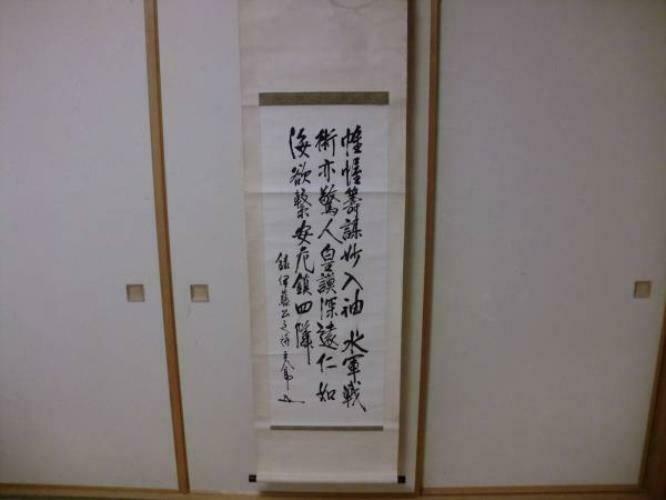 帷幄籌謀妙入神水軍戰
術亦驚人皇謨深遠仁如
海欲繋安危鎮四隣
録伊藤公之詩